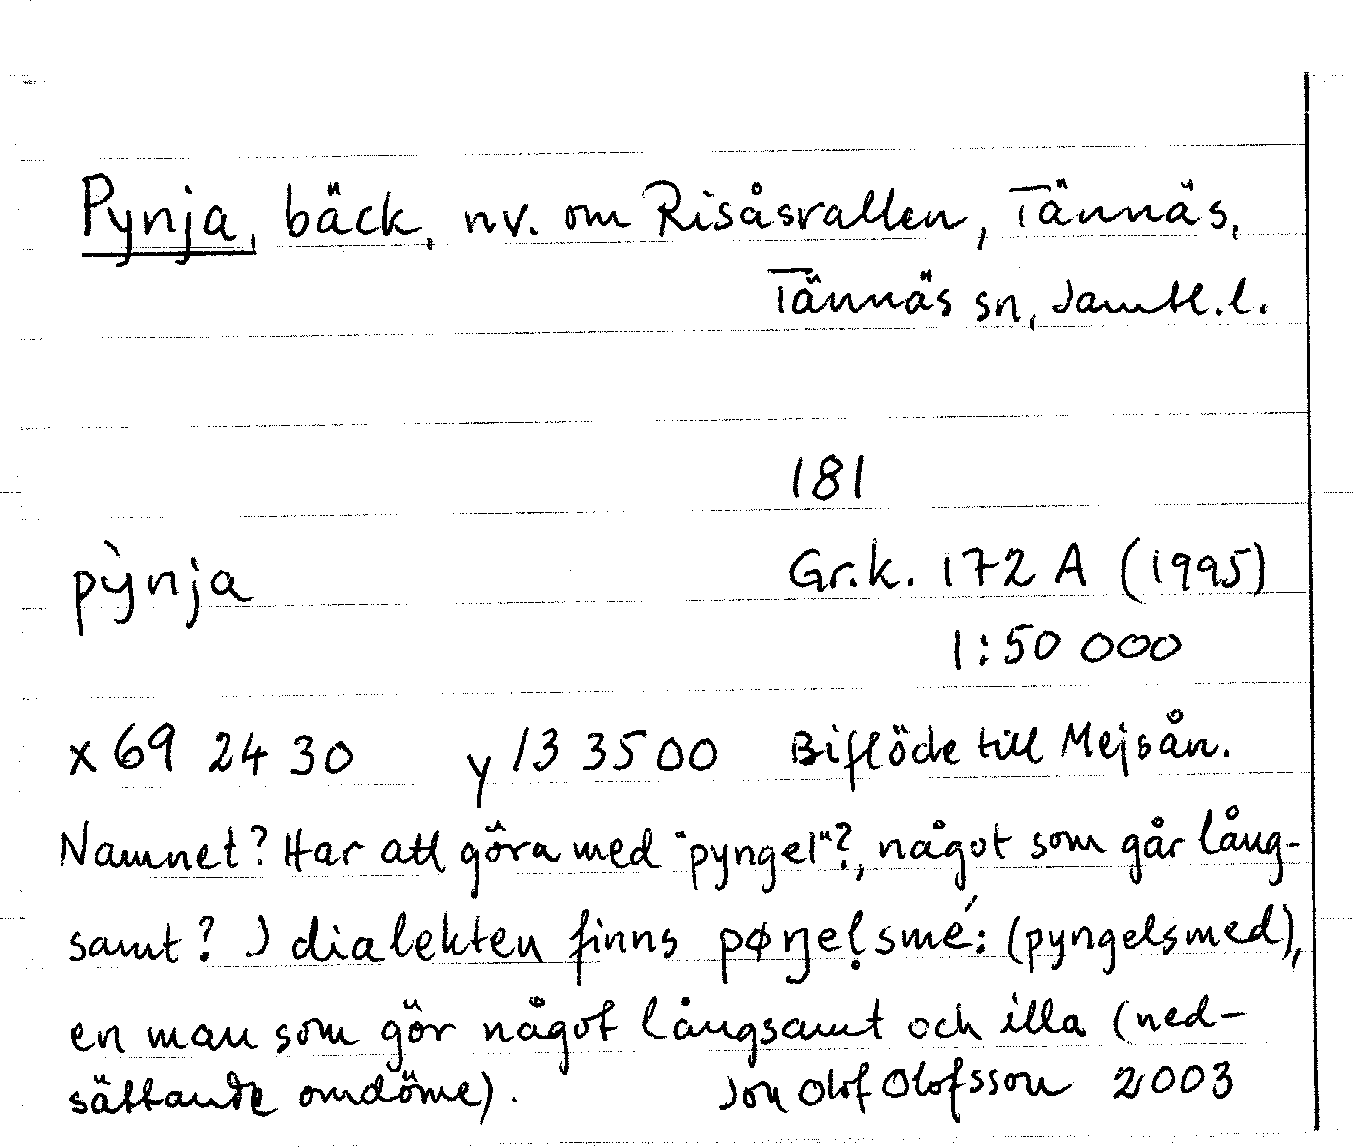 Pynja, bäck, nv. om Risåsvallen, Tännäs,
Tännäs sn, Jämtl.l.
181
pỳnja
Gr.k. 172 A (1995)
1:50 000
x 69 24 30 y 13 35 00 Biflöde till Mejsån.
Namnet? Har att göra med "pyngel"?, något som går lång-
samt? I dialekten finns pøŋel̩smé: (pyngelsmed),
en man som gör något långsamt och illa (ned-
sättande omdöme). Jon Olof Olofsson 2003